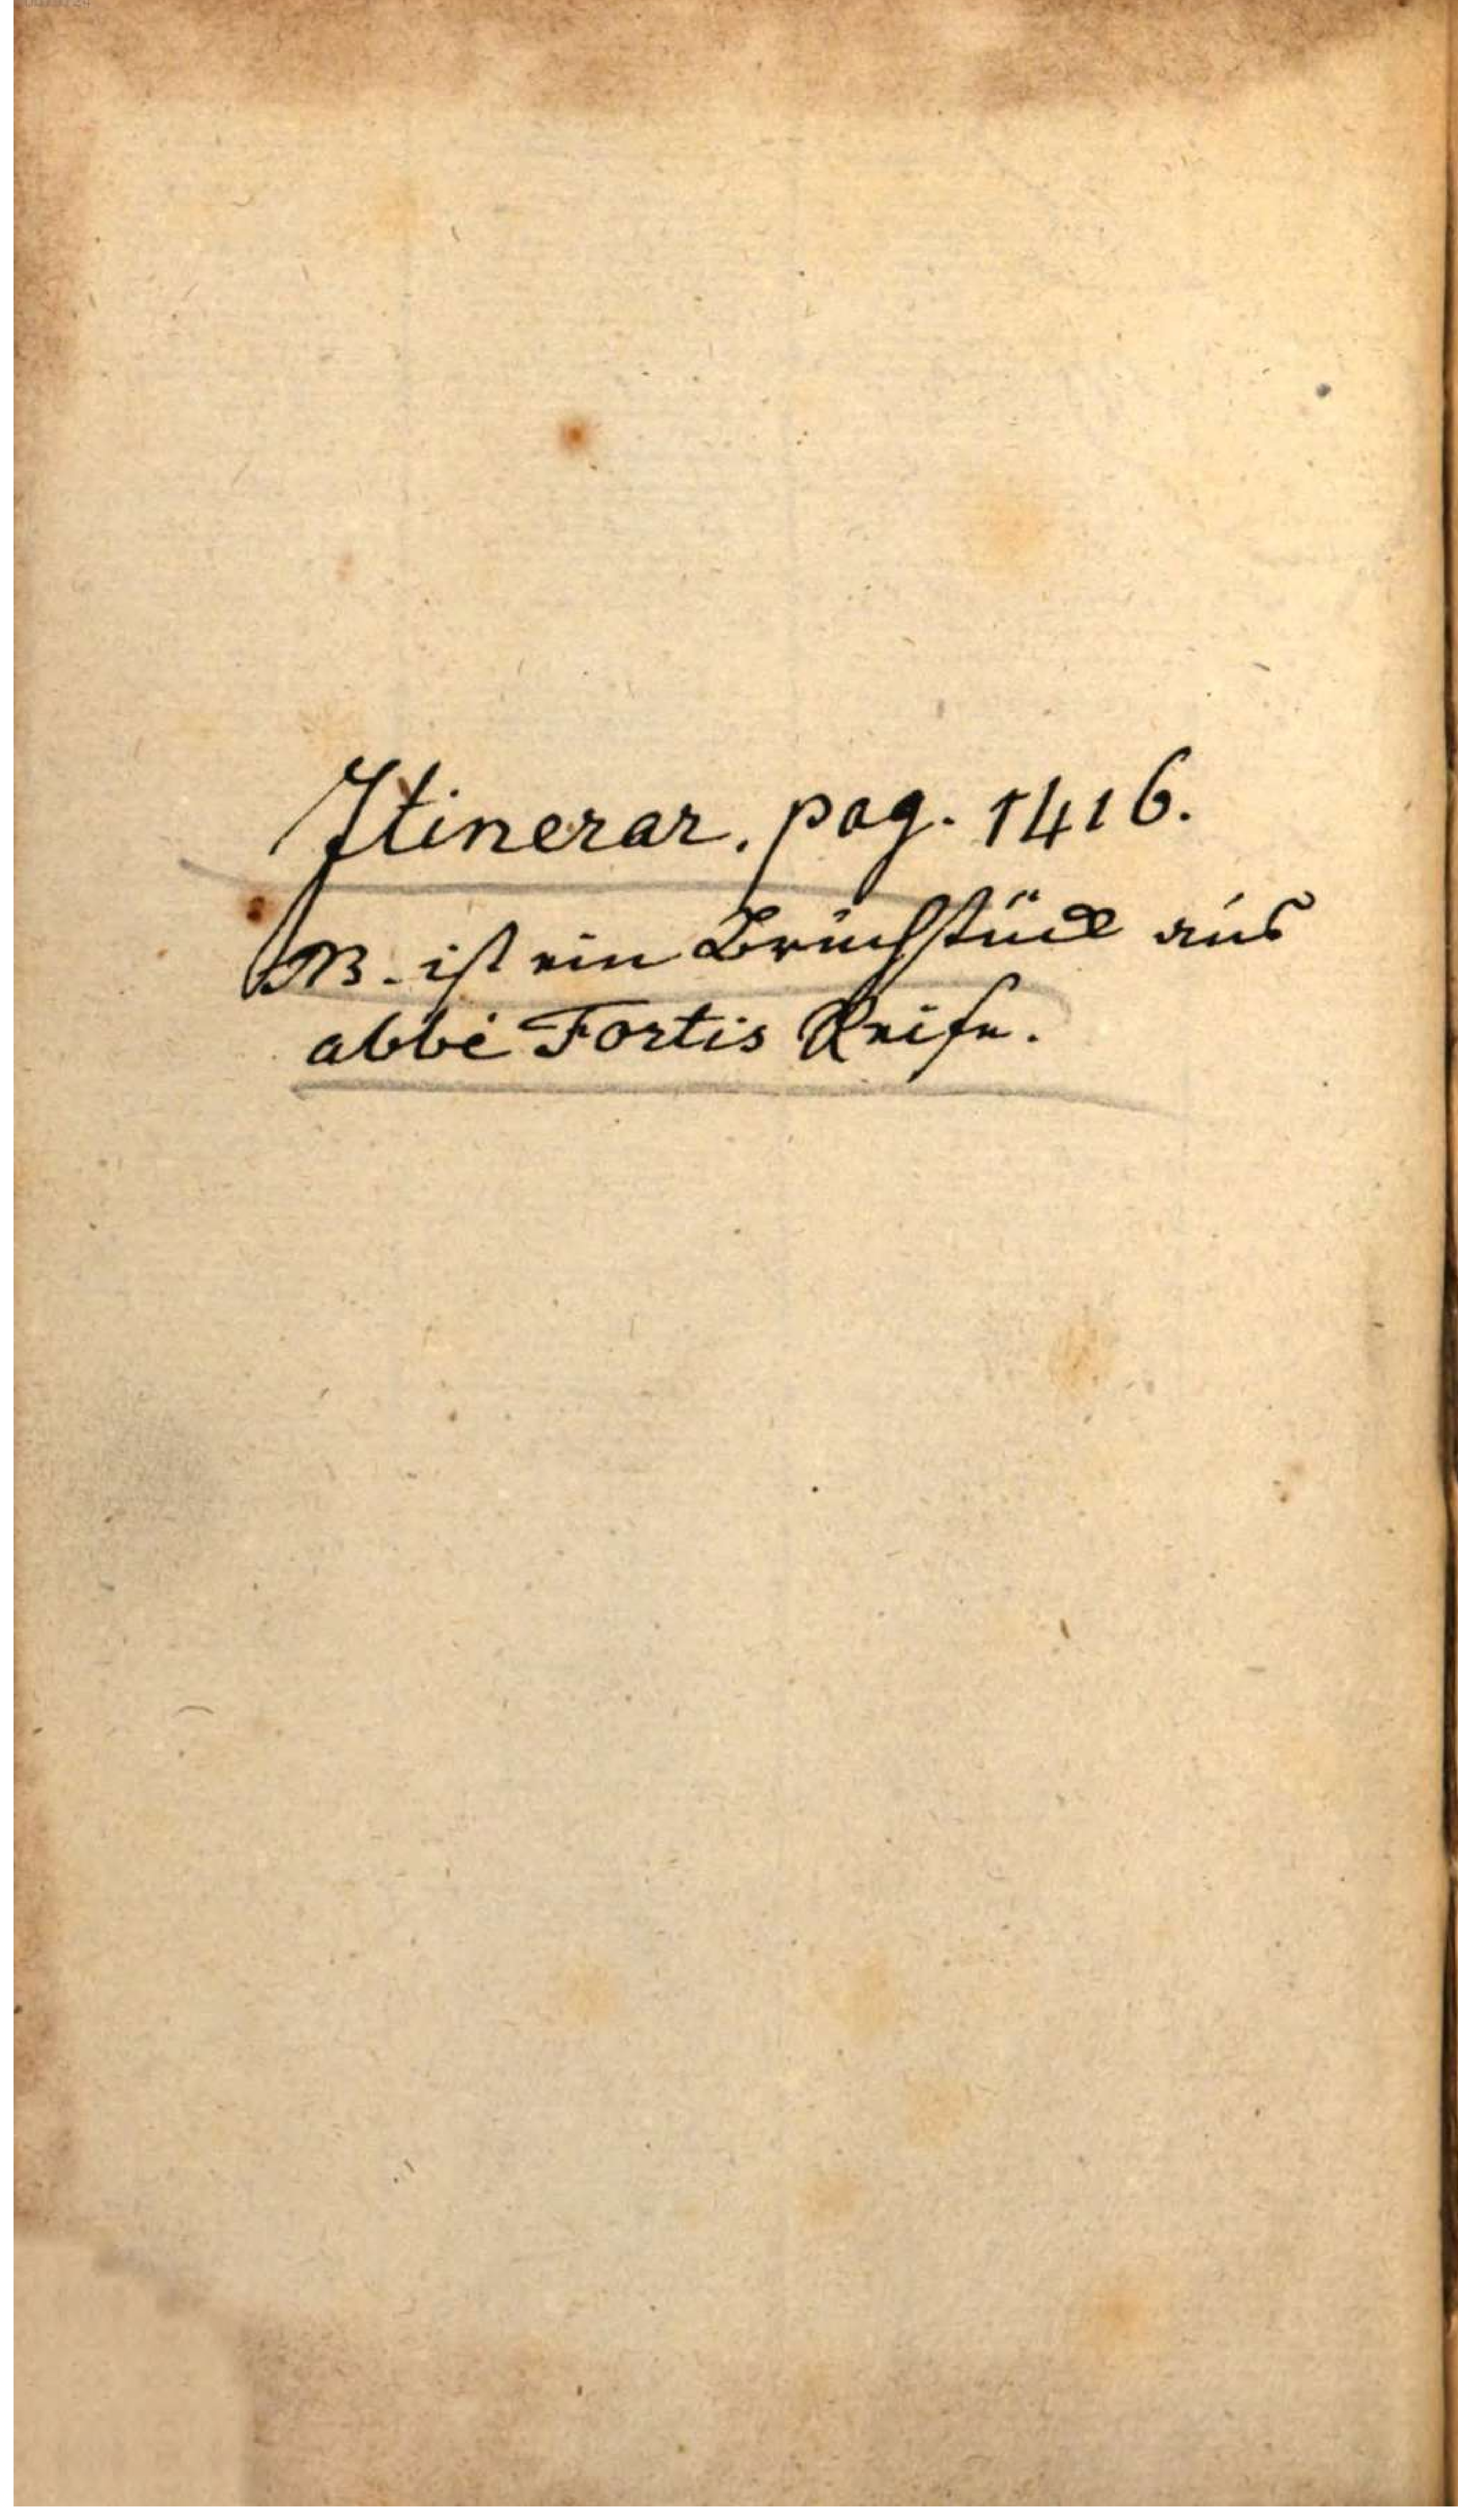 Itinerar. pag. 1416.
NB. ist ein Bruchstück aus
abbé Fortis Reise.